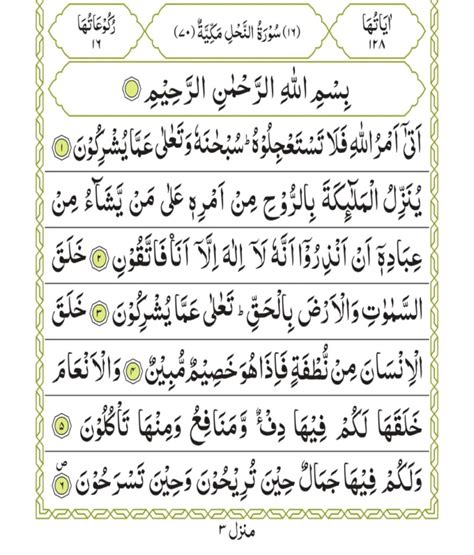 اٰيَاتُهَا ١٢٨
(١٦) سُوْرَةُ النَّحْلِ مَكِّيَّةٌ (٧٠)
رُكُوْعَاتُهَا ١٦
بِسْمِ اللّٰهِ الرَّحْمٰنِ الرَّحِيْمِ
اَتٰۤى اَمْرُ اللّٰهِ فَلَا تَسْتَعْجِلُوْهُ ؕ سُبْحٰنَهٗ وَتَعٰلٰى عَمَّا يُشْرِكُوْنَ ١
يُنَزِّلُ الْمَلٰٓئِكَةَ بِالرُّوْحِ مِنْ اَمْرِهٖ عَلٰى مَنْ يَّشَآءُ مِنْ
عِبَادِهٖۤ اَنْ اَنْذِرُوْۤا اَنَّهٗ لَاۤ اِلٰهَ اِلَّاۤ اَنَا فَاتَّقُوْنِ ٢ خَلَقَ
السَّمٰوٰتِ وَالْاَرْضَ بِالْحَقِّ ؕ تَعٰلٰى عَمَّا يُشْرِكُوْنَ ٣ خَلَقَ
الْاِنْسَانَ مِنْ نُّطْفَةٍ فَاِذَا هُوَ خَصِيْمٌ مُّبِيْنٌ ٤ وَالْاَنْعَامَ
خَلَقَهَا لَكُمْ فِيْهَا دِفْءٌ وَّمَنَافِعُ وَمِنْهَا تَاْكُلُوْنَ ٥
وَلَكُمْ فِيْهَا جَمَالٌ حِيْنَ تُرِيْحُوْنَ وَحِيْنَ تَسْرَحُوْنَ ۪ ٦
منزل ٣